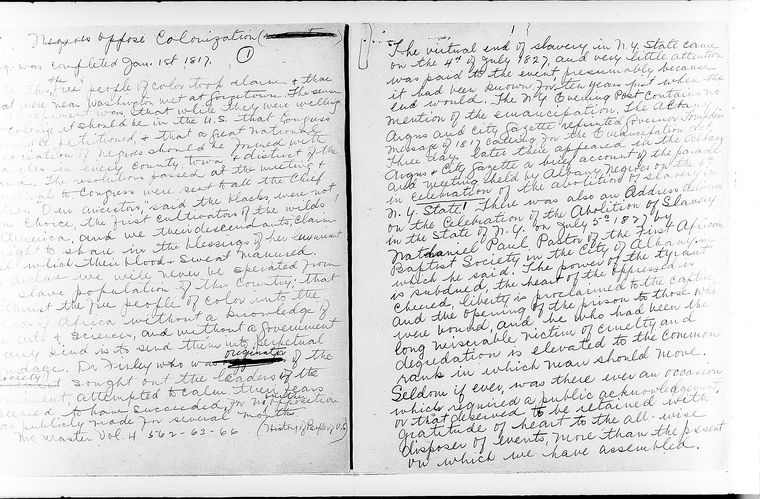 Negroes oppose Colonization
was completed Jan. 1st 1817. 1
the free people of color took alarm & those
were near Washington met at Georgetown. The sense
was that while they were willing
colonize it should be in the U.S. that Congress
be petitioned, & that a great National
association of Negroes should be formed with
in every county town & district of the
The resolutions passed at the meeting &
to Congress were sent to all the Chief
Our ancestors, said the blacks, were not
choice, the first cultivators of the wilds
America, and we their descendants, claim
right to share in the blessings of her luxuriant
which their blood & sweat manured.
declare we will never be seperated from
slave population of the Country; that
thrust the free people of color into the
wilds of Africa without a knowledge of
arts & sciences, and without a government
any kind is to send them into perpetual
bondage. Dr Finley who was originator of the
Society sought out the leaders of the
movement, attempted to calm their fears
seemed to have succeeded, for no further
publicly made for several months
Mc Master Vol. 4 562-63-66 (History of People of U.S.)
1
The virtual end of slavery in N.Y. State came
on the 4th of July 1827, and very little attention
was paid to the event presumably because
it had been known for ten years just when the
end would. The N.Y. Evening Post contains no
mention of the emancipation. The Albany
Argus and City Gazette reprinted Governor Tompkins
message of 1817 calling for the Emancipation Act.
Three days later there appeared in the Albany
Argus & City Gazette a brief account of the parade
and meeting held by Albany Negroes on the
in celebration of the abolition of slavery in
N.Y. State! There was also an Address delivered
on the Celebration of the Abolition of Slavery
in the State of N.Y. on July 5th 1827 by
Nathaniel Paul, Pastor of the First African
Baptist Society in the City of Albany
which he said. The power of the tyrant
is subdued, the heart of the oppressed is
cheered, liberty is proclaimed to the captive
and the opening of the prison to those who
were bound, and he who had been the
long miserable victim of cruelty and
degredation is elevated to the common
rank in which man should move.
Seldom if ever, was there ever an occasion
which required a public acknowledgement,
or that deserved to be retained with
gratitude of heart to the all-wise
disposer of events, more than the present
on which we have assembled.